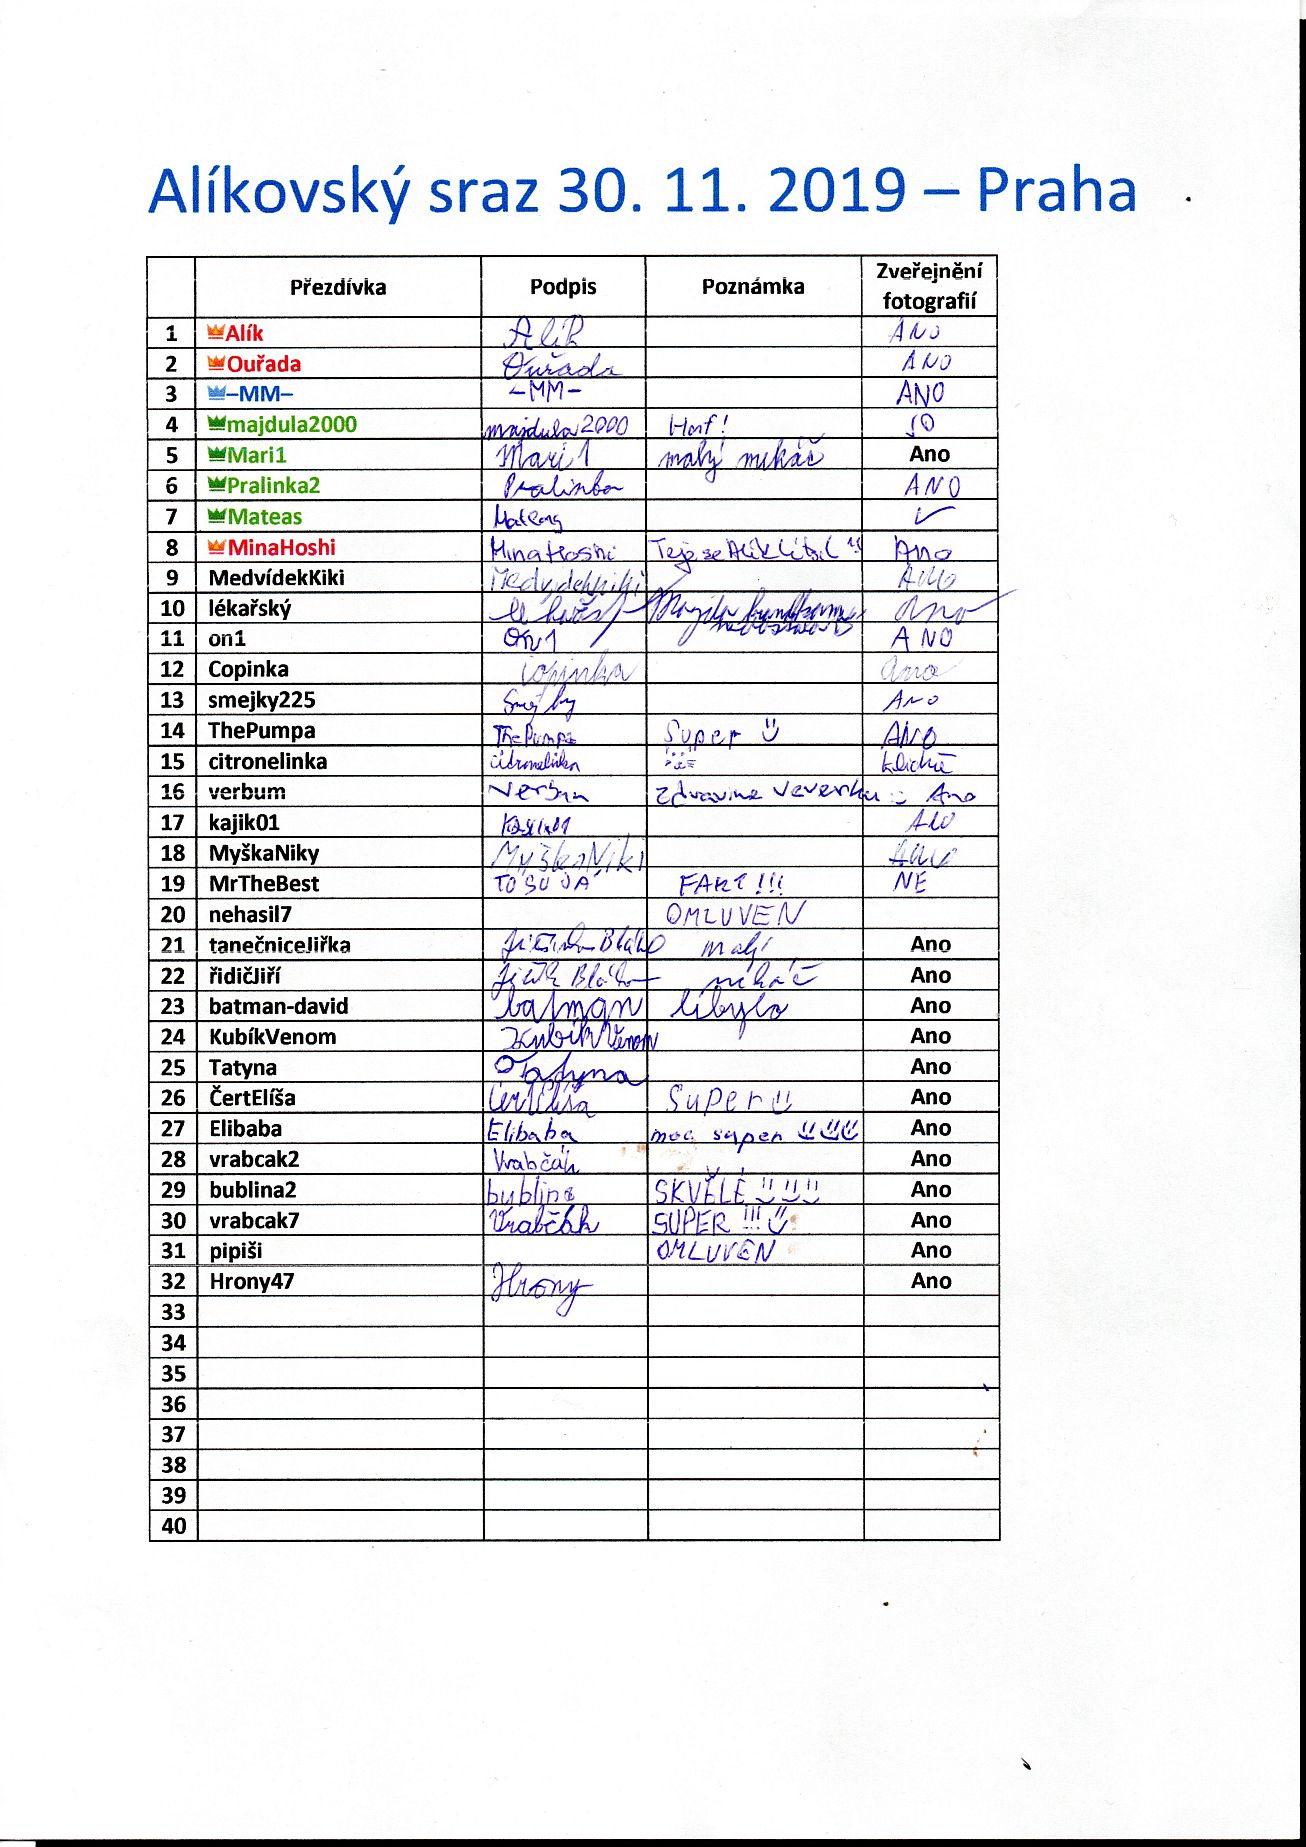 Alíkovský sraz 30. 11. 2019 – Praha
Přezdívka Podpis Poznámka Zveřejnění fotografií
1 Alík Alík ANO
2 Ouřada Ouřada ANO
3 –MM– –MM– ANO
4 majdula2000 majdula2000 Haf! JO
5 Mari1 Mari1 malý mikáč Ano
6 Pralinka2 Pralinka ANO
7 Mateas Mateas ✓
8 MinaHoshi MinaHoshi Ano
9 MedvídekKiki MedvídekKiki Ano
10 lékařský lékařský Ano
11 on1 On1 ANO
12 Copinka Copinka Ano
13 smejky225 Smejky Ano
14 ThePumpa ThePumpa Super ANO
15 citronelinka citronelinka klidně
16 verbum Verbum Zdravíme Veverku Ano
17 kajik01 Kajik01 ANO
18 MyškaNiky MyškaNiki Ano
19 MrTheBest TO SU JÁ FAKT!!! NE
20 nehasil7 OMLUVEN
21 tanečniceJiřka malý Ano
22 řidičJiří Ano
23 batman-david batman líbylo Ano
24 KubíkVenom KubíkVenom Ano
25 Tatyna Tatyna Ano
26 ČertElíša ČertElíša Super Ano
27 Elibaba Elibaba moc super Ano
28 vrabcak2 Vrabčák Ano
29 bublina2 bublina SKVĚLÉ Ano
30 vrabcak7 Vrabčák SUPER!!! Ano
31 pipiši OMLUVEN Ano
32 Hrony47 Hrony Ano
33
34
35
36
37
38
39
40